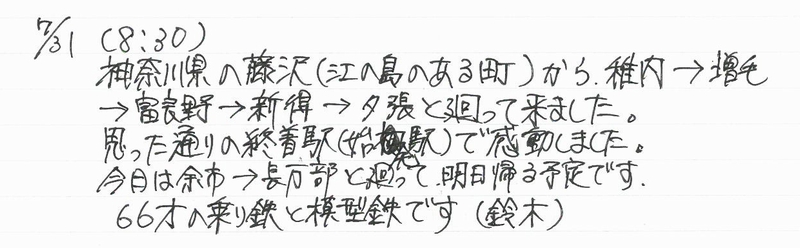 7/31 (8:30)
神奈川県の藤沢(江の島のある町)から、稚内→増毛
→富良野→新得→夕張と廻って来ました。
思った通りの終着駅(始発駅)で感動しました。
今日は余市→長万部と廻って、明日帰る予定です.
66才の乗り鉄と模型鉄です(鈴木)